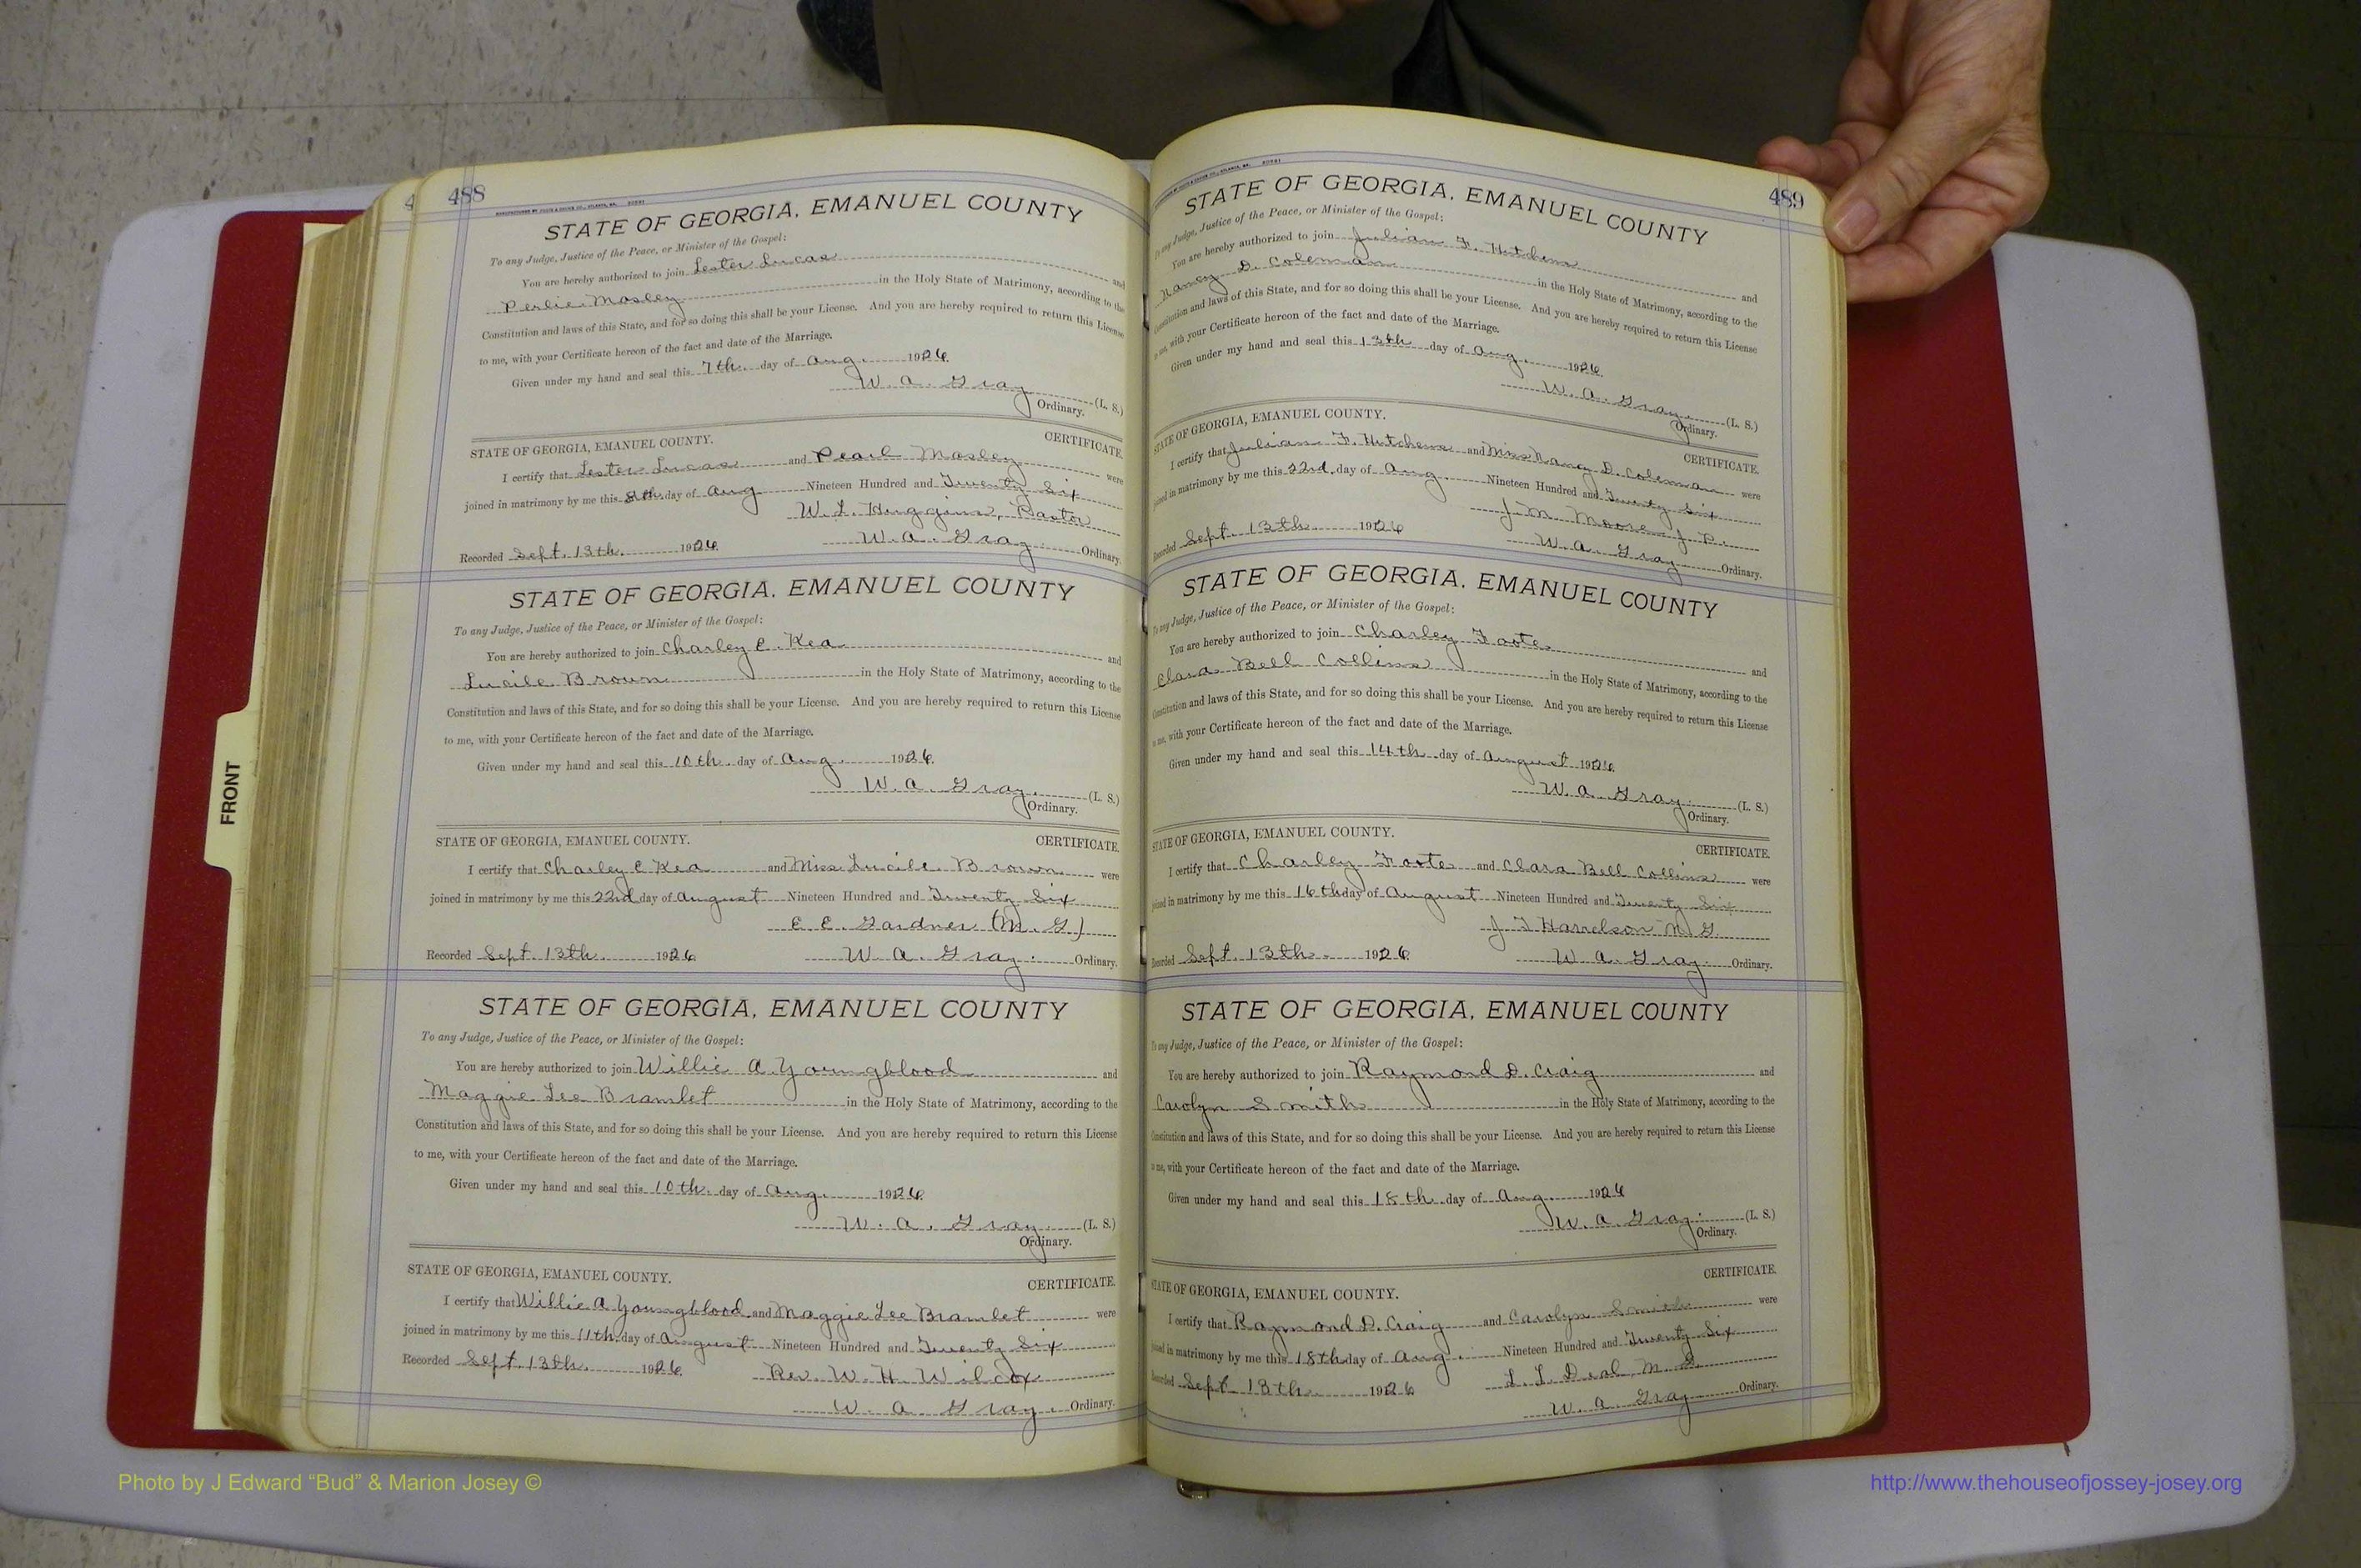 488
STATE OF GEORGIA, EMANUEL COUNTY
To any Judge, Justice of the Peace, or Minister of the Gospel:
You are hereby authorized to join Lester Lucas and
Perlie Mosley in the Holy State of Matrimony, according to the
Constitution and laws of this State, and for so doing this shall be your License. And you are hereby required to return this License
to me, with your Certificate hereon of the fact and date of the Marriage.
Given under my hand and seal this 7th. day of Aug. 1926.
W. A. Gray (L. S.)
Ordinary.
STATE OF GEORGIA, EMANUEL COUNTY. CERTIFICATE.
I certify that Lester Lucas and Pearl Mosley were
joined in matrimony by me this 8th. day of Aug Nineteen Hundred and Twenty Six
W. L. Huggins, Pastor
Recorded Sept. 13th. 1926. W. A. Gray Ordinary.
STATE OF GEORGIA, EMANUEL COUNTY
To any Judge, Justice of the Peace, or Minister of the Gospel:
You are hereby authorized to join Charley E. Kea and
Lucile Brown in the Holy State of Matrimony, according to the
Constitution and laws of this State, and for so doing this shall be your License. And you are hereby required to return this License
to me, with your Certificate hereon of the fact and date of the Marriage.
Given under my hand and seal this 10th. day of Aug. 1926.
W. A. Gray. (L. S.)
Ordinary.
STATE OF GEORGIA, EMANUEL COUNTY. CERTIFICATE.
I certify that Charley E Kea and Miss Lucile Brown were
joined in matrimony by me this 22nd day of August Nineteen Hundred and Twenty Six
E. E. Gardner (M. G)
Recorded Sept. 13th. 1926. W. A. Gray. Ordinary.
STATE OF GEORGIA, EMANUEL COUNTY
To any Judge, Justice of the Peace, or Minister of the Gospel:
You are hereby authorized to join Willie A Youngblood and
Maggie Lee Bramlet in the Holy State of Matrimony, according to the
Constitution and laws of this State, and for so doing this shall be your License. And you are hereby required to return this License
to me, with your Certificate hereon of the fact and date of the Marriage.
Given under my hand and seal this 10th. day of Aug. 1926.
W. A. Gray. (L. S.)
Ordinary.
STATE OF GEORGIA, EMANUEL COUNTY. CERTIFICATE.
I certify that Willie A Youngblood and Maggie Lee Bramlet were
joined in matrimony by me this 11th. day of August Nineteen Hundred and Twenty Six
Recorded Sept. 13th. 1926. Rev. W. H. Wilcox
W. A. Gray. Ordinary.
489
STATE OF GEORGIA, EMANUEL COUNTY
To any Judge, Justice of the Peace, or Minister of the Gospel:
You are hereby authorized to join Julian F. Hutchens and
Nancy D. Coleman in the Holy State of Matrimony, according to the
Constitution and laws of this State, and for so doing this shall be your License. And you are hereby required to return this License
to me, with your Certificate hereon of the fact and date of the Marriage.
Given under my hand and seal this 13th day of Aug. 1926.
W. A. Gray. (L. S.)
Ordinary.
STATE OF GEORGIA, EMANUEL COUNTY. CERTIFICATE.
I certify that Julian F. Hutchens and Miss Nancy D. Coleman were
joined in matrimony by me this 22nd. day of Aug. Nineteen Hundred and Twenty Six
J. M. Moore J. P.
Recorded Sept. 13th. 1926 W. A. Gray Ordinary.
STATE OF GEORGIA, EMANUEL COUNTY
To any Judge, Justice of the Peace, or Minister of the Gospel:
You are hereby authorized to join Charley Foote and
Clara Bell Collins in the Holy State of Matrimony, according to the
Constitution and laws of this State, and for so doing this shall be your License. And you are hereby required to return this License
to me, with your Certificate hereon of the fact and date of the Marriage.
Given under my hand and seal this 14th. day of August 1926.
W. A. Gray. (L. S.)
Ordinary.
STATE OF GEORGIA, EMANUEL COUNTY. CERTIFICATE.
I certify that Charley Foote and Clara Bell Collins were
joined in matrimony by me this 16th day of August Nineteen Hundred and Twenty Six
J T Harrelson M. G.
Recorded Sept. 13th. 1926. W. A. Gray. Ordinary.
STATE OF GEORGIA, EMANUEL COUNTY
To any Judge, Justice of the Peace, or Minister of the Gospel:
You are hereby authorized to join Raymond D. Craig and
Carolyn Smith in the Holy State of Matrimony, according to the
Constitution and laws of this State, and for so doing this shall be your License. And you are hereby required to return this License
to me, with your Certificate hereon of the fact and date of the Marriage.
Given under my hand and seal this 18th. day of Aug. 1926
W. A. Gray. (L. S.)
Ordinary.
CERTIFICATE.
STATE OF GEORGIA, EMANUEL COUNTY.
I certify that Raymond D. Craig and Carolyn Smith were
joined in matrimony by me this 18th day of Aug. Nineteen Hundred and Twenty Six
L. L. Deal, M. G.
Recorded Sept 13th. 1926 W. A. Gray Ordinary.
FRONT
Photo by J Edward “Bud” & Marion Josey ©
http://www.thehouseofjossey-josey.org